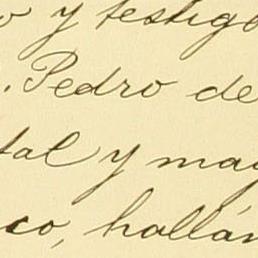 o y testigo
. Pedro de
tal y may
co, hallán